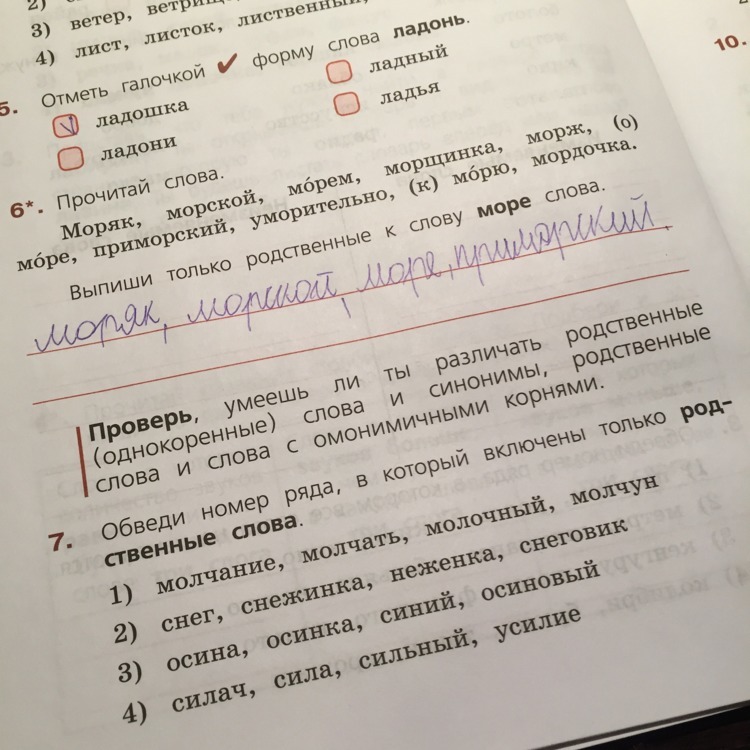 2)
3) ветер, ветри
4) лист, листок, лиственный,
5. Отметь галочкой ✔ форму слова ладонь.
ладошка ладный
ладони ладья
6*. Прочитай слова.
Моряк, морской, мо́рем, морщинка, морж, (о)
мо́ре, приморский, уморительно, (к) мо́рю, мордочка.
Выпиши только родственные к слову море слова.
моряк, морской, море, приморский.
Проверь, умеешь ли ты различать родственные
(однокоренные) слова и синонимы, родственные
слова и слова с омонимичными корнями.
7. Обведи номер ряда, в который включены только род-
ственные слова.
1) молчание, молчать, молочный, молчун
2) снег, снежинка, неженка, снеговик
3) осина, осинка, синий, осиновый
4) силач, сила, сильный, усилие
10.